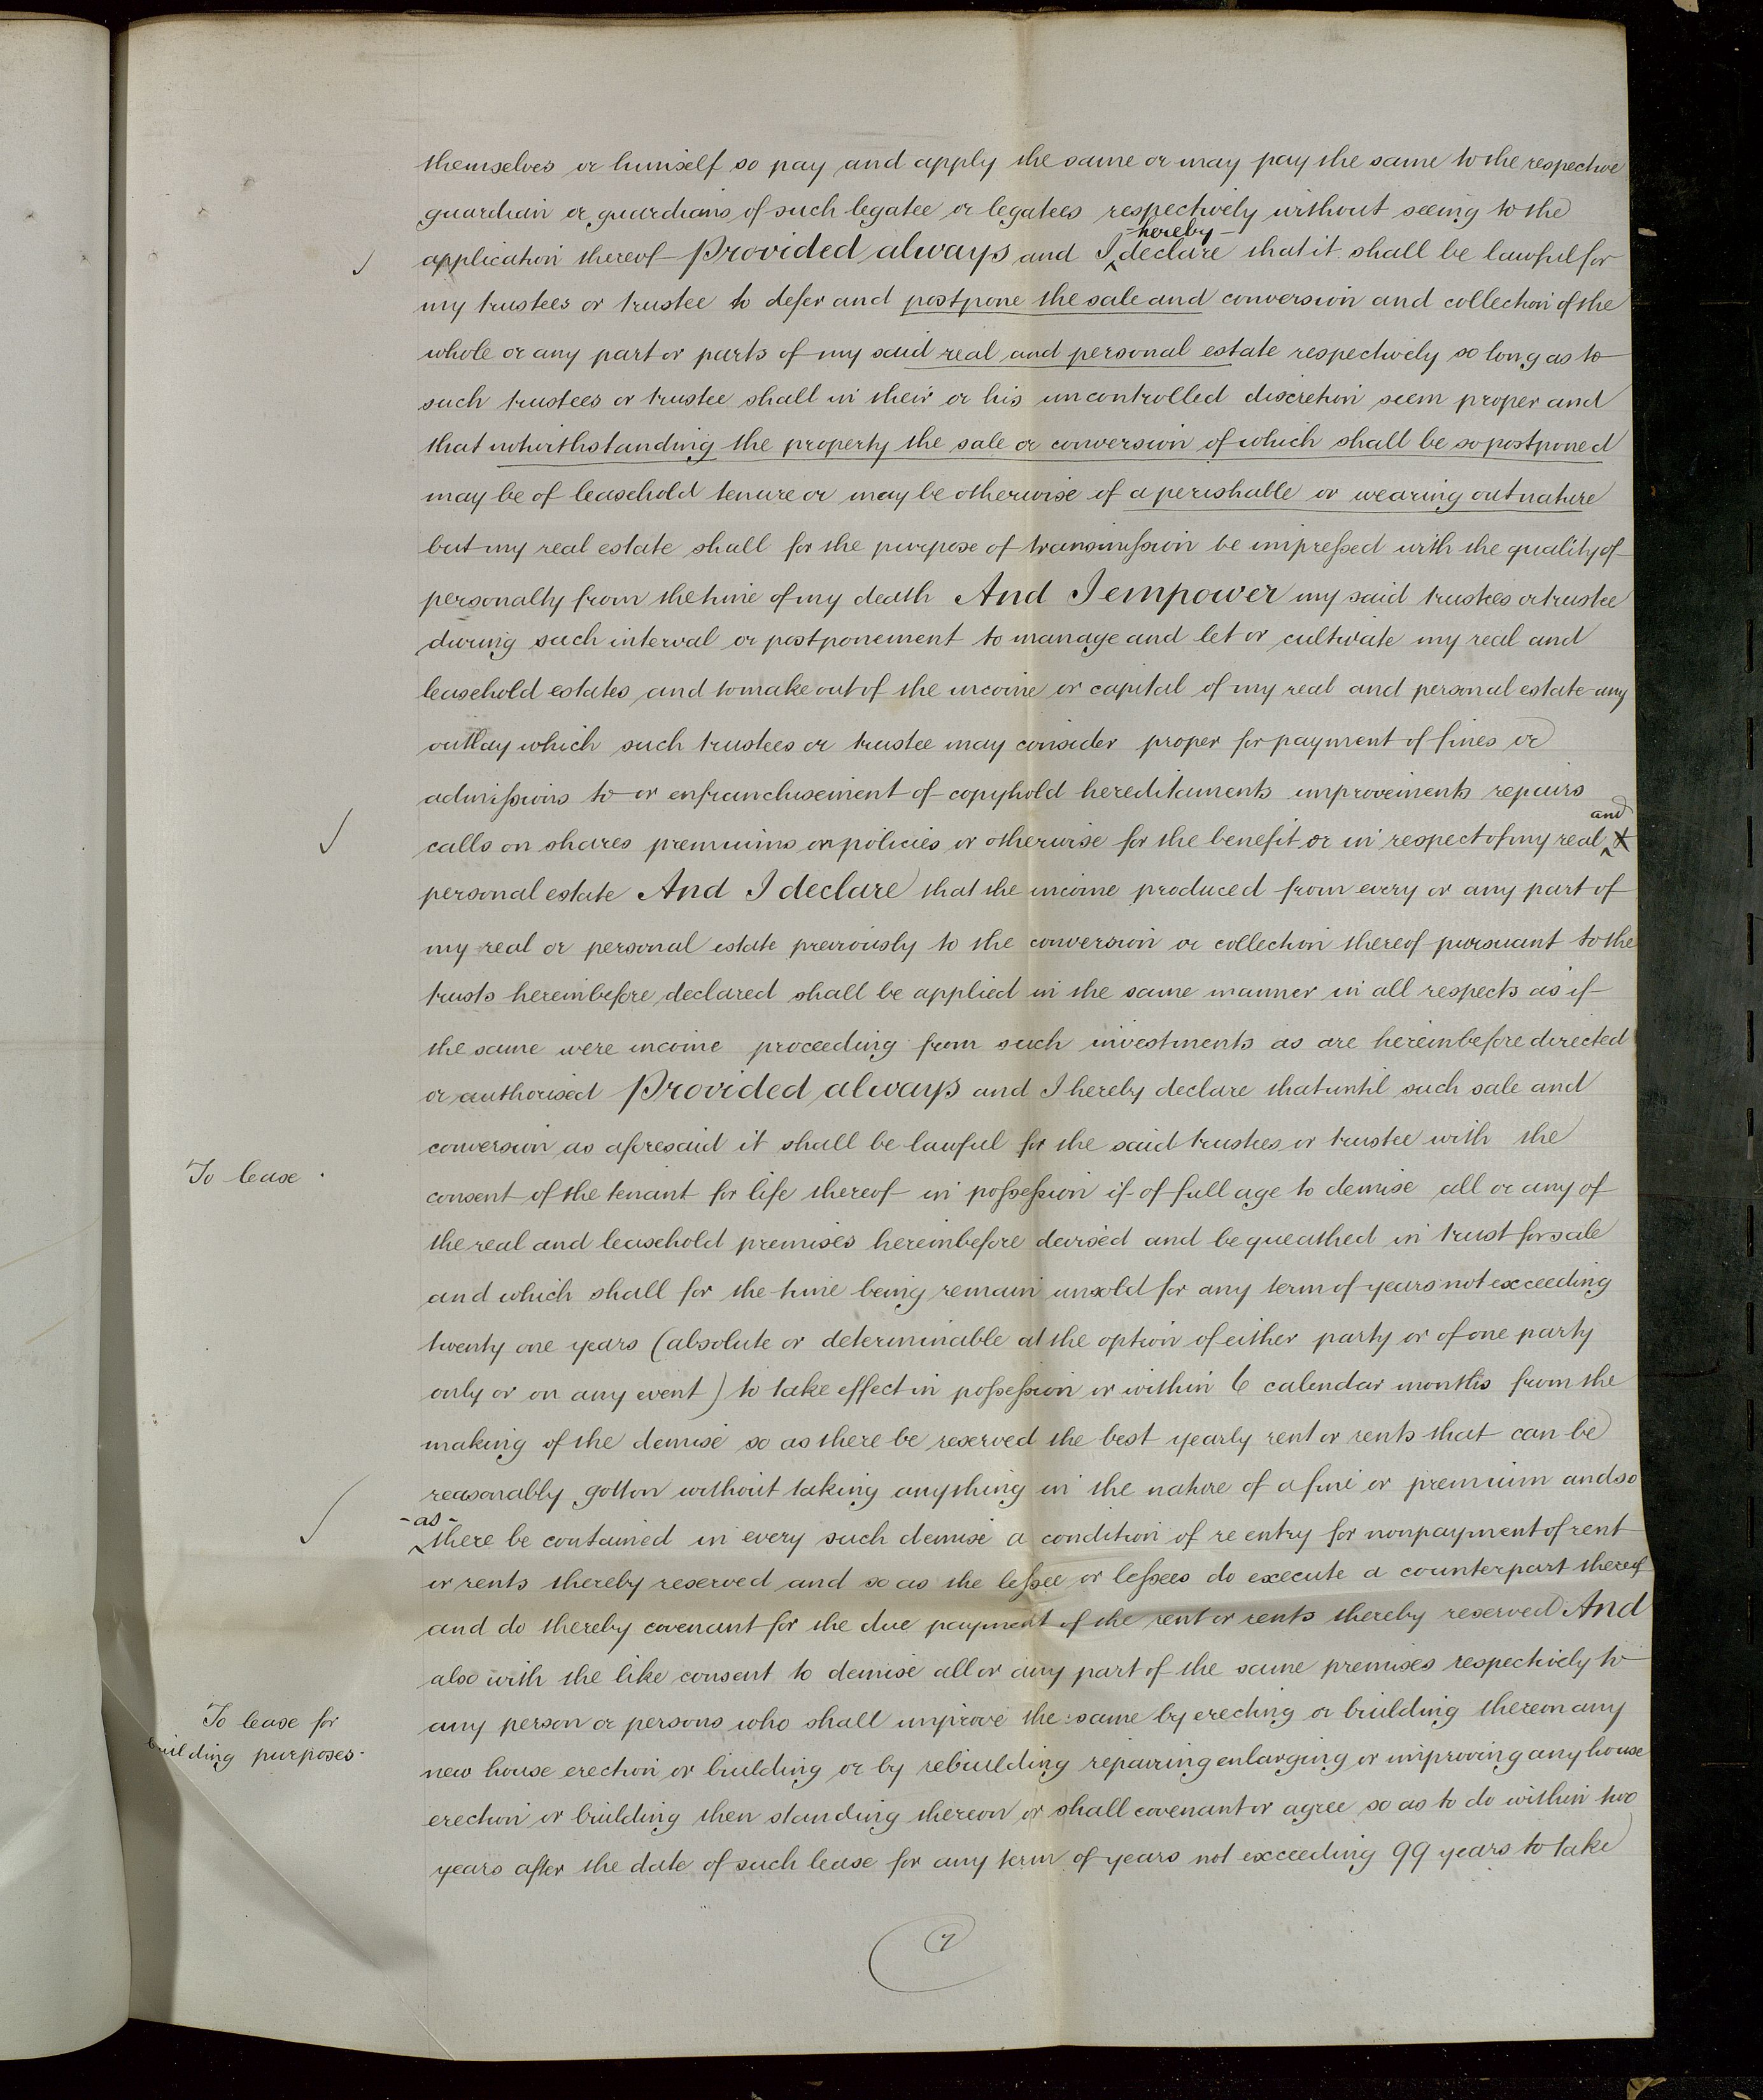 themselves or himself so pay and apply the same or may pay the same to the respective
guardian or guardians of such legatee or legatees respectively without seeing to the
-hereby-
application thereof Provided always and I declare that it shall be lawful for
my trustees or trustee to defer and postpone the sale and conversion and collection of the
whole or any part or parts of my said real and personal estate respectively so long as to
such trustees or trustee shall in their or his uncontrolled discretion seem proper and
that notwithstanding the property the sale or conversion of which shall be so postponed
may be of leasehold tenure or may be otherwise of a perishable or wearing out nature
but my real estate shall for the purpose of transmission be impressed with the quality of
personalty from the time of my death And I empower my said trustees or trustee
during such interval or postponement to manage and let or cultivate my real and
leasehold estates and to make out of the income or capital of my real and personal estate any
outlay which such trustees or trustee may consider proper for payment of fines or
admissions to or enfranchisement of copyhold hereditaments improvements repairs
and
calls on shares premiums on policies or otherwise for the benefit or in respect of my real
personal estate And I declare that the income produced from every or any part of
my real or personal estate previously to the conversion or collection thereof pursuant to the
trusts hereinbefore declared shall be applied in the same manner in all respects as if
the same were income proceeding from such investments as are hereinbefore directed
or authorised Provided always and I hereby declare that until such sale and
conversion as aforesaid it shall be lawful for the said trustees or trustee with the
To lease
consent of the tenant for life thereof in possession if of full age to demise all or any of
the real and leasehold premises hereinbefore devised and bequeathed in trust for sale
and which shall for the time being remain unsold for any term of years not exceeding
twenty one years (absolute or determinable at the option of either party or of one party
only or on any event) to take effect in possession or within 6 calendar months from the
making of the demise so as there be reserved the best yearly rent or rents that can be
reasonably gotton without taking anything in the nature of a fine or premium and so
-as-
there be contained in every such demise a condition of re entry for nonpayment of rent
or rents thereby reserved and so as the lessee or lessees do execute a counterpart thereof
and do thereby covenant for the due payment of the rent or rents thereby reserved And
also with the like consent to demise all or any part of the same premises respectively to
To lease for
building purposes
any person or persons who shall improve the same by erecting or building thereon any
new house erection or building or by rebuilding repairing enlarging or improving any house
erection or building then standing thereon or shall covenant or agree so as to do within two
years after the date of such lease for any term of years not exceeding 99 years to take
7